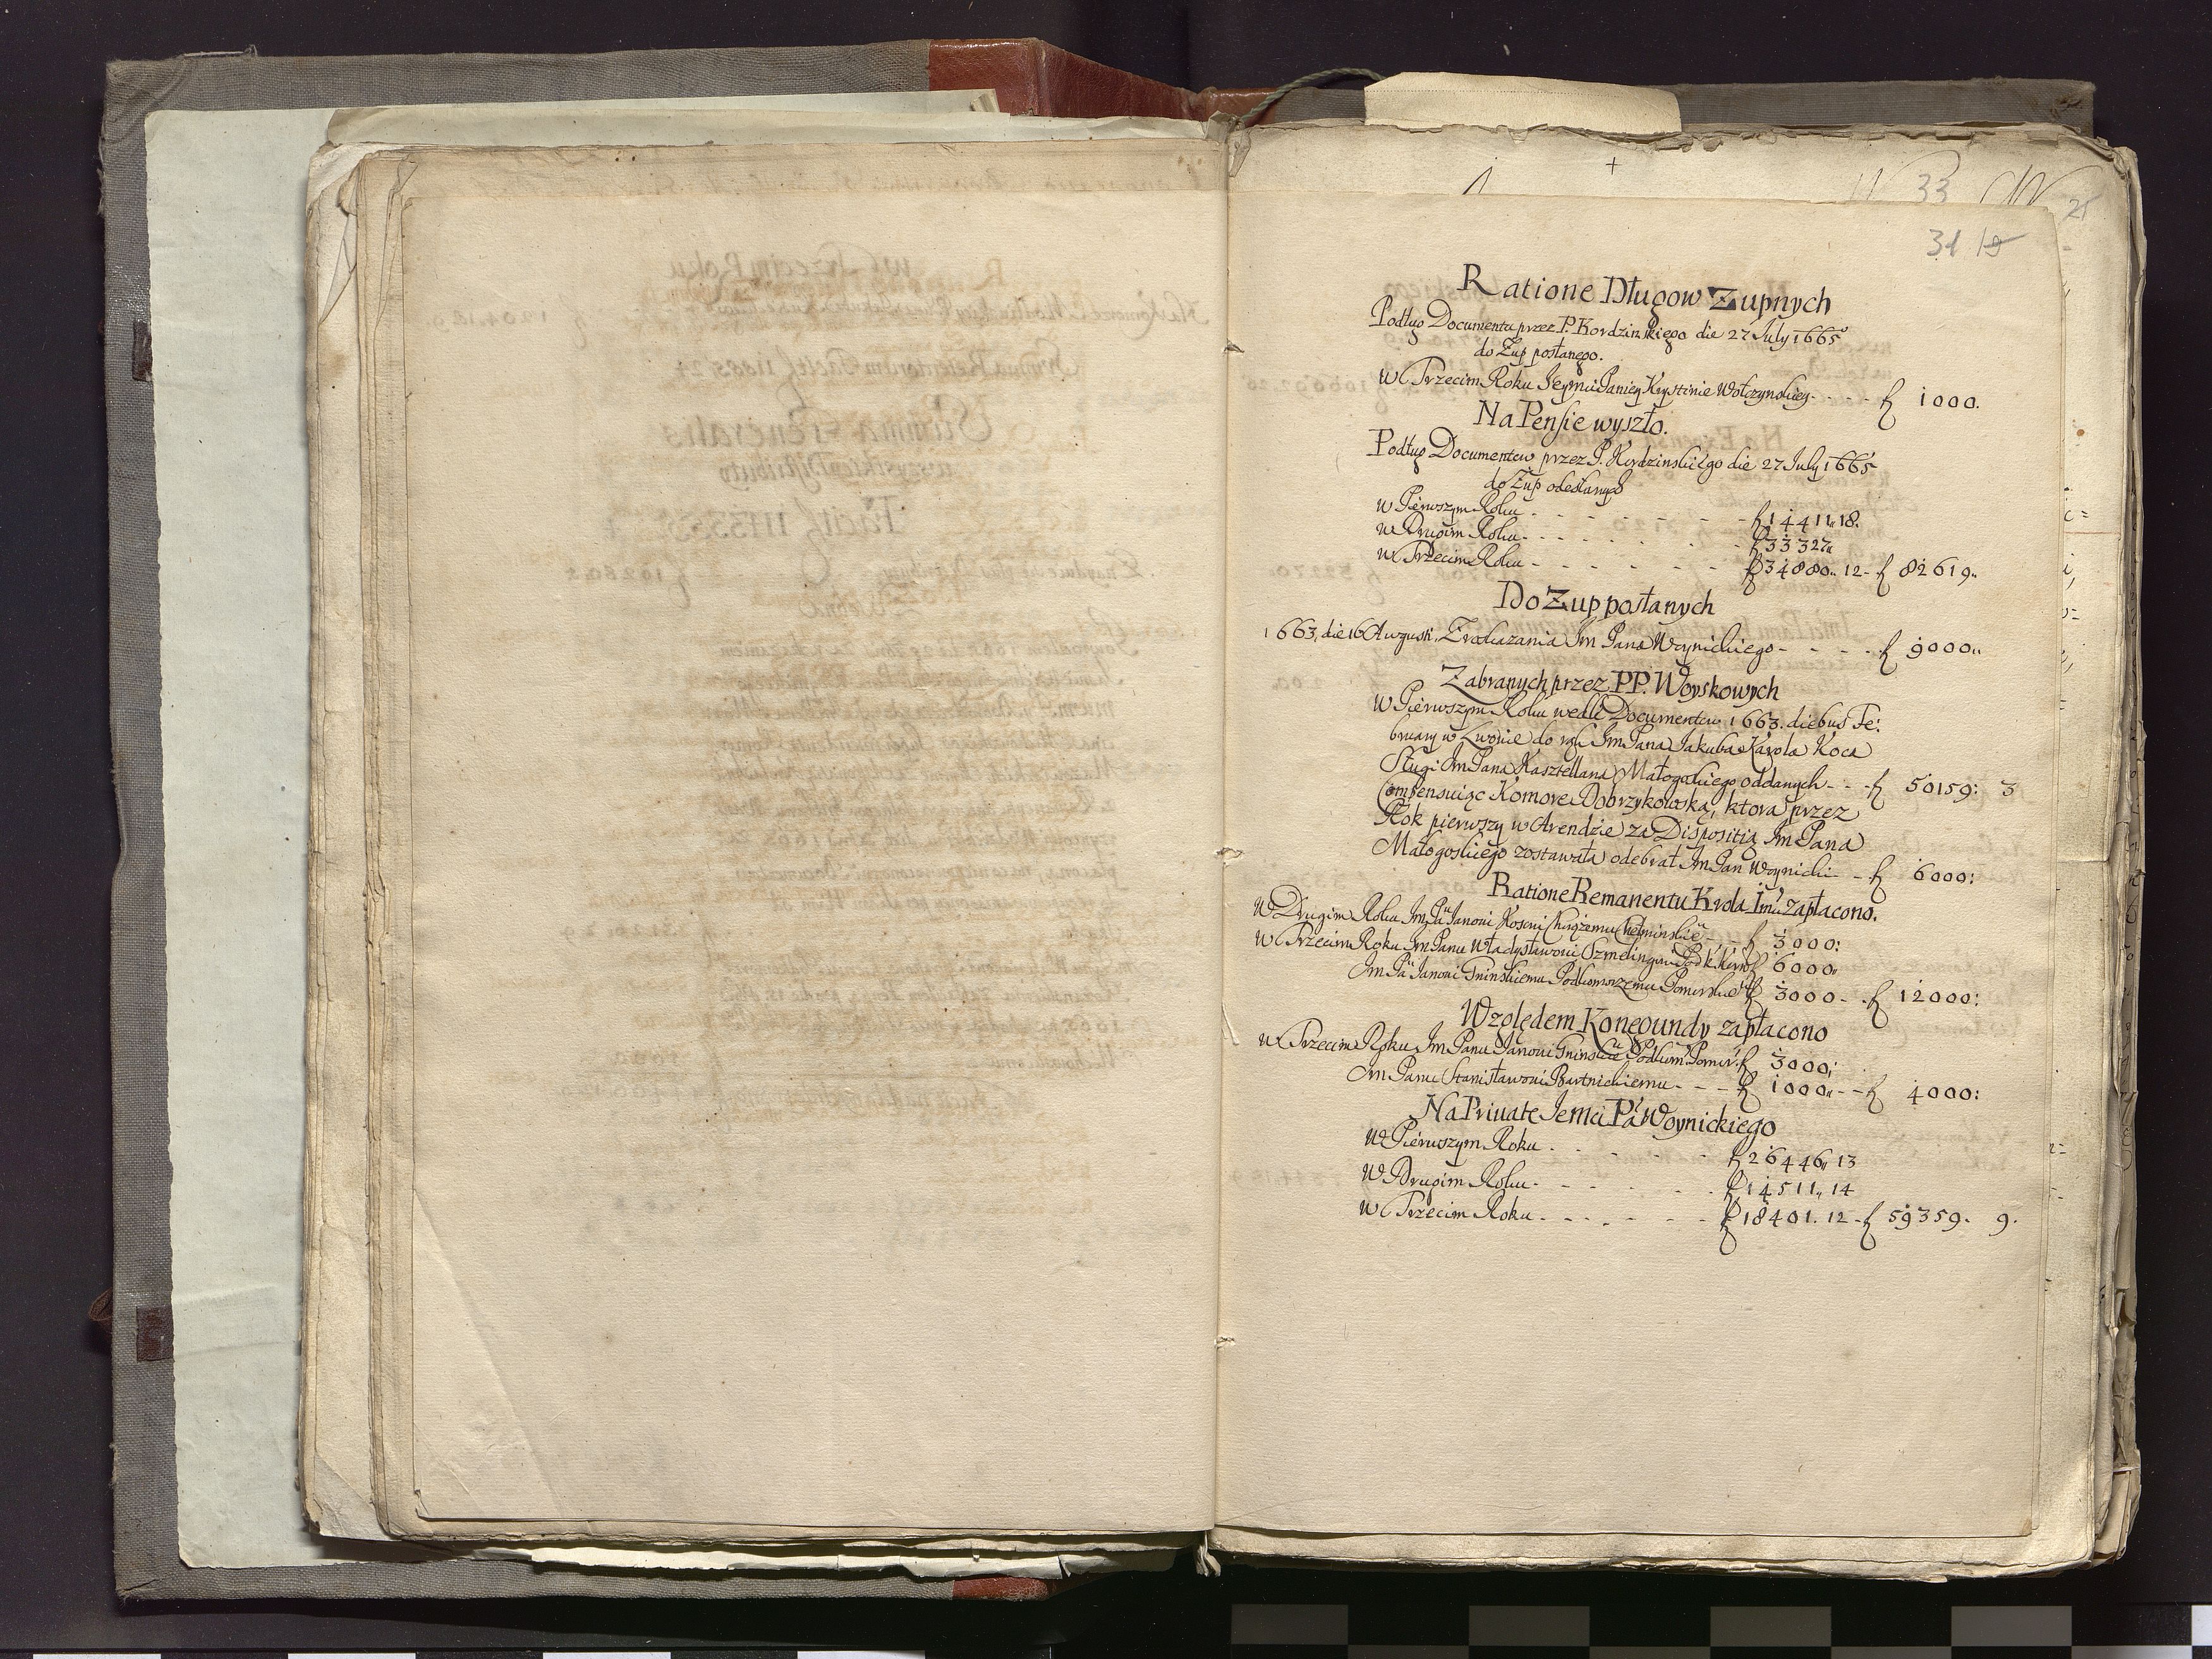 33
21
31 19
Ratione Długow Zupnych
Podług Documentu przez P. Kordzinskiego die 27 July 1665
do Zup posłanego.
W Trzecim Roku Jeymci Paniey Krystinie Wołczynskiey - - - - f 1000.
Na Pensie wyszło.
Podług Documentow przez P. Kordzinskiego die 27 July 1665
do Zup odesłanych
W Pierwszym Roku - - - - - - f 14411,, 18.
W Drugim Roku - - - - - - f 33327,,
W Trzecim Roku - - - - - - f 34880,, 12 - f 82619,,
Do Zup posłanych
1663, die 16 Augusti. Z roskazania Jm Pana Woynickiego - - - - f 9000,,
Zabranych przez PP. Woyskowych
W Pierwszym Roku wedle Documentow 1663. diebus Fe:
bruary w Lwowie do rąk Jm Pana Jakuba Karola Koca
Sługi Jm Pana Kasztellana Małogoskiego oddanych - - - f 50159: 3
Compensuiąc Komorę Dobrzykowską, ktora przez
Rok pierwszy w Arendzie za Dispositią Jm Pana
Małogoskiego zostawała odebrał Jm Pan Woynicki - f 6000:
Ratione Remanentu Krola Jmci zapłacono.
W Drugim Roku Jm Pu Janowi Kosowi Chorążemu Chełminskiē - - f 3000:
W Trzecim Roku Jm Panu Władysławowi Szmelingowi f 6000,,
Jm Pu Janowi Gninskiemu Podkomorzemu Pomorskiē f 3000 - - f 12000:
Względem Konegundy zapłacono
W Trzecim Roku Jm Panu Janowi Gninskiē Podkom: Pomor: f 3000;
Jm Panu Stanisławowi Bartnickiemu - - - f 1000,, - - f 4000:
Na Priuate Jemci Pa Woynickiego
W Pierwszym Roku - - - - - f 26446,, 13
W Drugim Roku - - - - - f 14511,, 14
W Trzecim Roku - - - - - - f 18401. 12 - f 59359. 9.